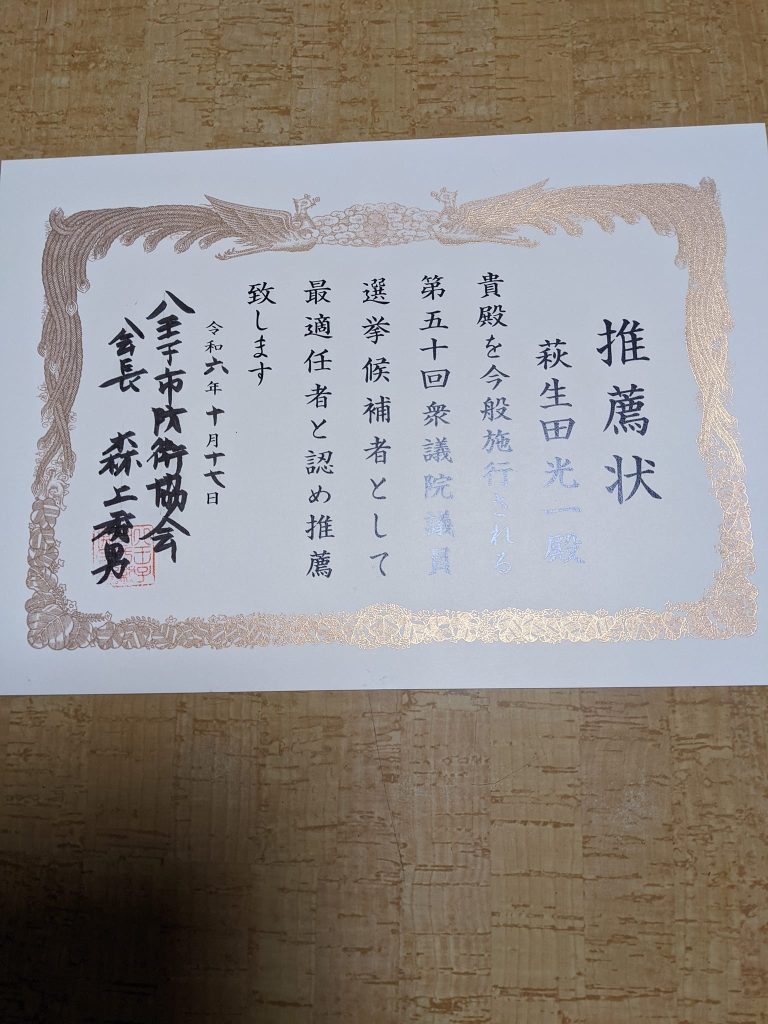 推薦状
萩生田光一殿
貴殿を今般施行される
第五十回衆議院議員
選挙候補者として
最適任者と認め推薦
致します
令和六年十月十七日
八王子市防衛協会
会長 森上秀男